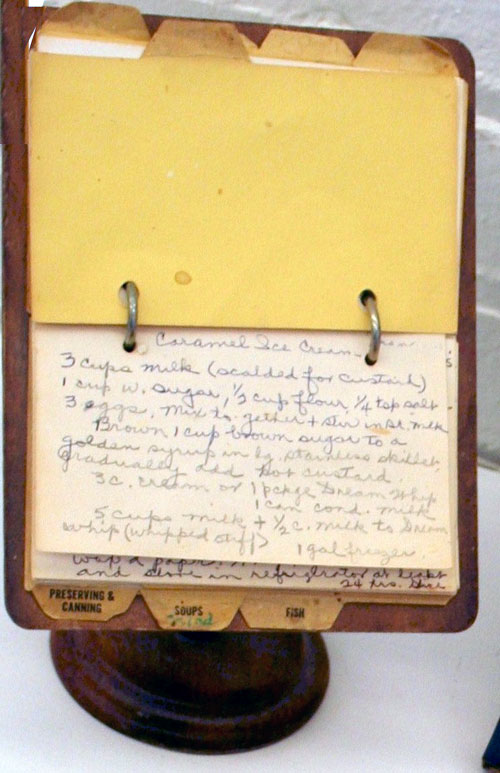 Caramel Ice Cream
3 cups milk (scalded for custard)
1 cup w. sugar, 1/3 cup flour, 1/4 tsp salt
3 eggs, mix to gether + stir in sc. milk
Brown 1 cup brown sugar to a
golden syrup in lg. stainless skillet
gradually add hot custard.
3 c. cream or 1 pckge Dream Whip
1 can cond. milk
5 cups milk + 1/2 c. milk to Dream
whip (whipped stiff)
1 gal freezer.
and store in refrigrator at least
24 hrs.
PRESERVING &
CANNING
SOUPS
FISH